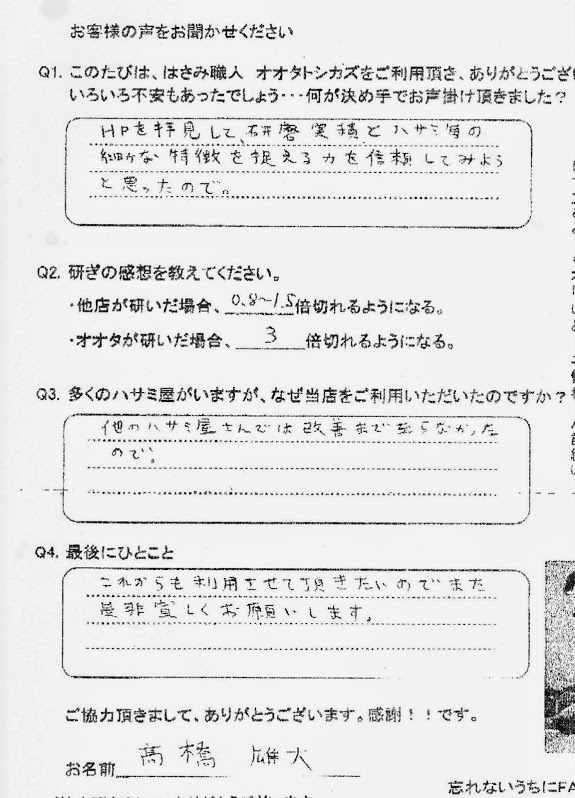 お客様の声をお聞かせください
Q1. このたびは、はさみ職人 オオタトシカズをご利用頂き、ありがとうござ
いろいろ不安もあったでしょう・・・何が決め手でお声掛け頂きました?
HPを拝見して、研磨実積とハサミ毎の
細かな特徴を捉える力を信頼してみよう
と思ったので。
Q2. 研ぎの感想を教えてください。
・他店が研いだ場合、0.8〜1.5倍切れるようになる。
・オオタが研いだ場合、3倍切れるようになる。
Q3. 多くのハサミ屋がいますが、なぜ当店をご利用いただいたのですか?
他のハサミ屋さんでは改善まで至らなかった
ので。
Q4. 最後にひとこと
これからも利用させて頂きたいのでまた
是非宜しくお願いします。
ご協力頂きまして、ありがとうございます。感謝!!です。
お名前 髙橋 雄大
忘れないうちにFA